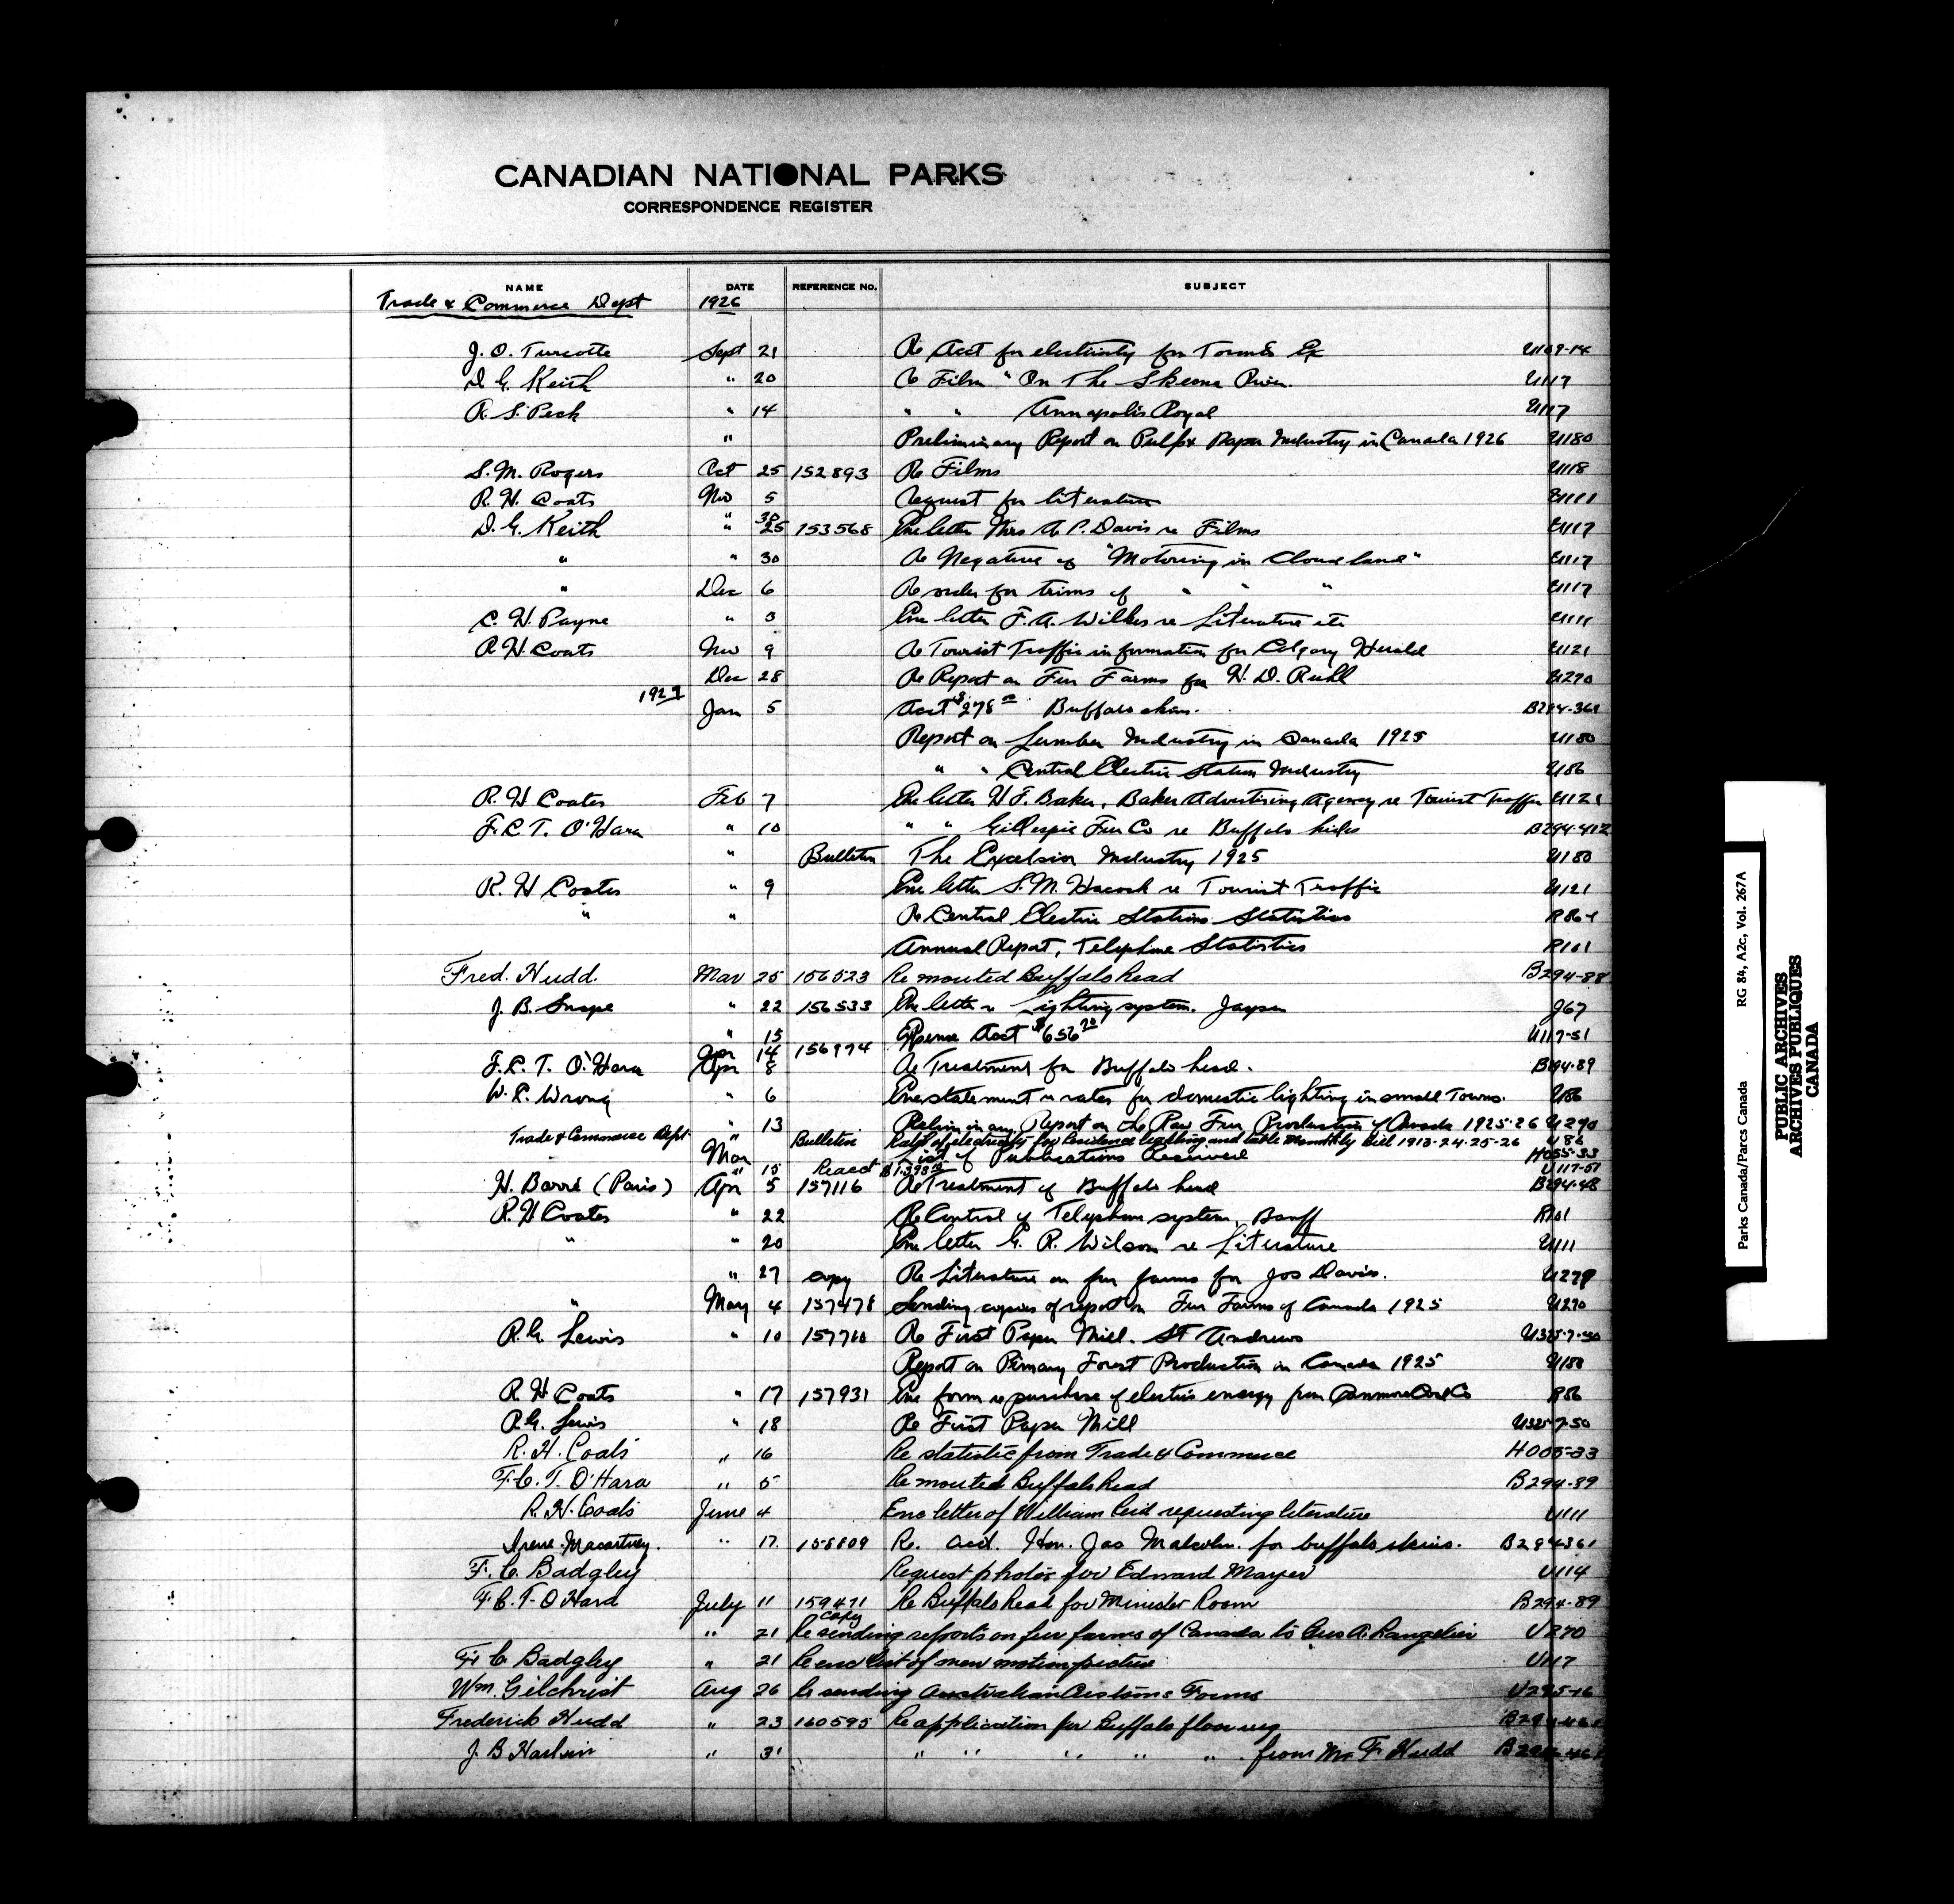 CANADIAN NATIONAL PARKS
CORRESPONDENCE REGISTER
NAME DATE REFERENCE No. SUBJECT
Trade & Commerce Dept 1926
J. O. Turcotte Sept 21 Re Acct for electricity for U109-14
D G. Keith " 20 Re Film "On The Skeena River. U117
R. S. Peck " 14 " " Annapolis Royal U117
" Preliminary Report on Pulp & Paper Industry in Canada 1926 U180
S. M. Rogers Oct 25 152893 Re Films U118
R. H. Coats Nov 5 Request for literature U111
30
D. G. Keith " 25 153568 Enc letter Mrs A. C. Davis re Films U117
" " 30 Re Negative of "Motoring in Cloudland" U117
" Dec 6 Re order for trims of " " " U117
C. H. Payne " 3 Enc letter F. A. Wilkes re Literature etc U111
R H Coats Nov 9 Re Tourist Traffic information for Calgary Herald U121
Dec 28 Re Report on Fur Farms for H. D. Ruhl U270
1927
Jan 5 Acct $278 Buffalo skins. B294-361
Report on Lumber Industry in Canada 1925 U180
" " Central Electric Station Industry U86
R. H Coates Feb 7 Enc letter H F. Baker, Baker Advertising Agency re Tourist Traffic U121
F. C. T. O'Hara " 10 " " Gillespie Fur Co re Buffalo hides B294-412
" Bulletin The Excelsior Industry 1925 U180
R. H Coates " 9 Enc letter S. M. re Tourist Traffic U121
" " Re Central Electric Stations Statistics R86-1
Annual Report, Telephone Statistics R101
Fred. Hudd. Mar 25 156523 Re mounted Buffalo head B294-88
J. B. Snape " 22 156533 Enc letter re Lighting system. Jasper J67
" 15 Expense Acct $656 20 U117-51
Apr 14 156974
F. C. T. O'Hara Apr 8 Re Treatment for Buffalo head. B294-89
W. C. Wrong " 6 Enc statement re rates for domestic lighting in small Towns. U86
" 13 Preliminary Report on the Raw Fur Production of Canada 1925-26 U270
Trade & Commerce Dept. " Bulletin of electricity for Residence lighting and table Monthly bill 1913-24-25-26 U86
Mar List of Publications Received H055-33
" 15 Re acct $1,393 U117-51
H. Barré (Paris) Apr 5 157116 Re Treatment of Buffalo head B294-48
R. H Coates " 22 Re Control of Telephone system, Banff R101
" " 20 Enc letter G. R. Wilson re Literature U111
" 27 copy Re Literature on fur farms for Jos Davis. U270
" May 4 157478 Sending copies of report on Fur Farms of Canada 1925 U270
R. G. Lewis " 10 157710 Re First Paper Mill. St Andrews U325-7-50
Report on Primary Forest Production in Canada 1925 U180
R H Coats " 17 157931 Enc form re purchase of electric energy from Canmore Coal Co R86
R. G. Lewis " 18 Re First Paper Mill U325-7-50
R. H. Coats " 16 Re statistic from Trade & Commerce H055-33
F. C. T. O'Hara " 5 Re mounted Buffalo head B294-89
R. H. Coats June 4 Enc letter of William Reid requesting literature U111
Irene Macartney. " 17. 158809 Re. acct. Hon. Jas Malcolm. for buffalo skins. B294361
F. C. Badgley Request photos for Edward Mayer U114
F. C. T. O'Hara July 11 159471 Re Buffalo head for Minister Room B294-89
copy
" 21 Re sending reports on fur farms of Canada to Gus A. Langelier U270
F. C Badgley " 21 Re enc list of new motion picture U117
Wm. Gilchrist Aug 26 Re sending Australian Customs Forms U295-16
Frederick Hudd " 23 160595 Re application for Buffalo
J. B Harkin " 31 " " " " " from Mr F Hudd
Parks Canada/Parcs Canada RG 84, A2c, Vol. 267A
PUBLIC ARCHIVES
ARCHIVES PUBLIQUES
CANADA